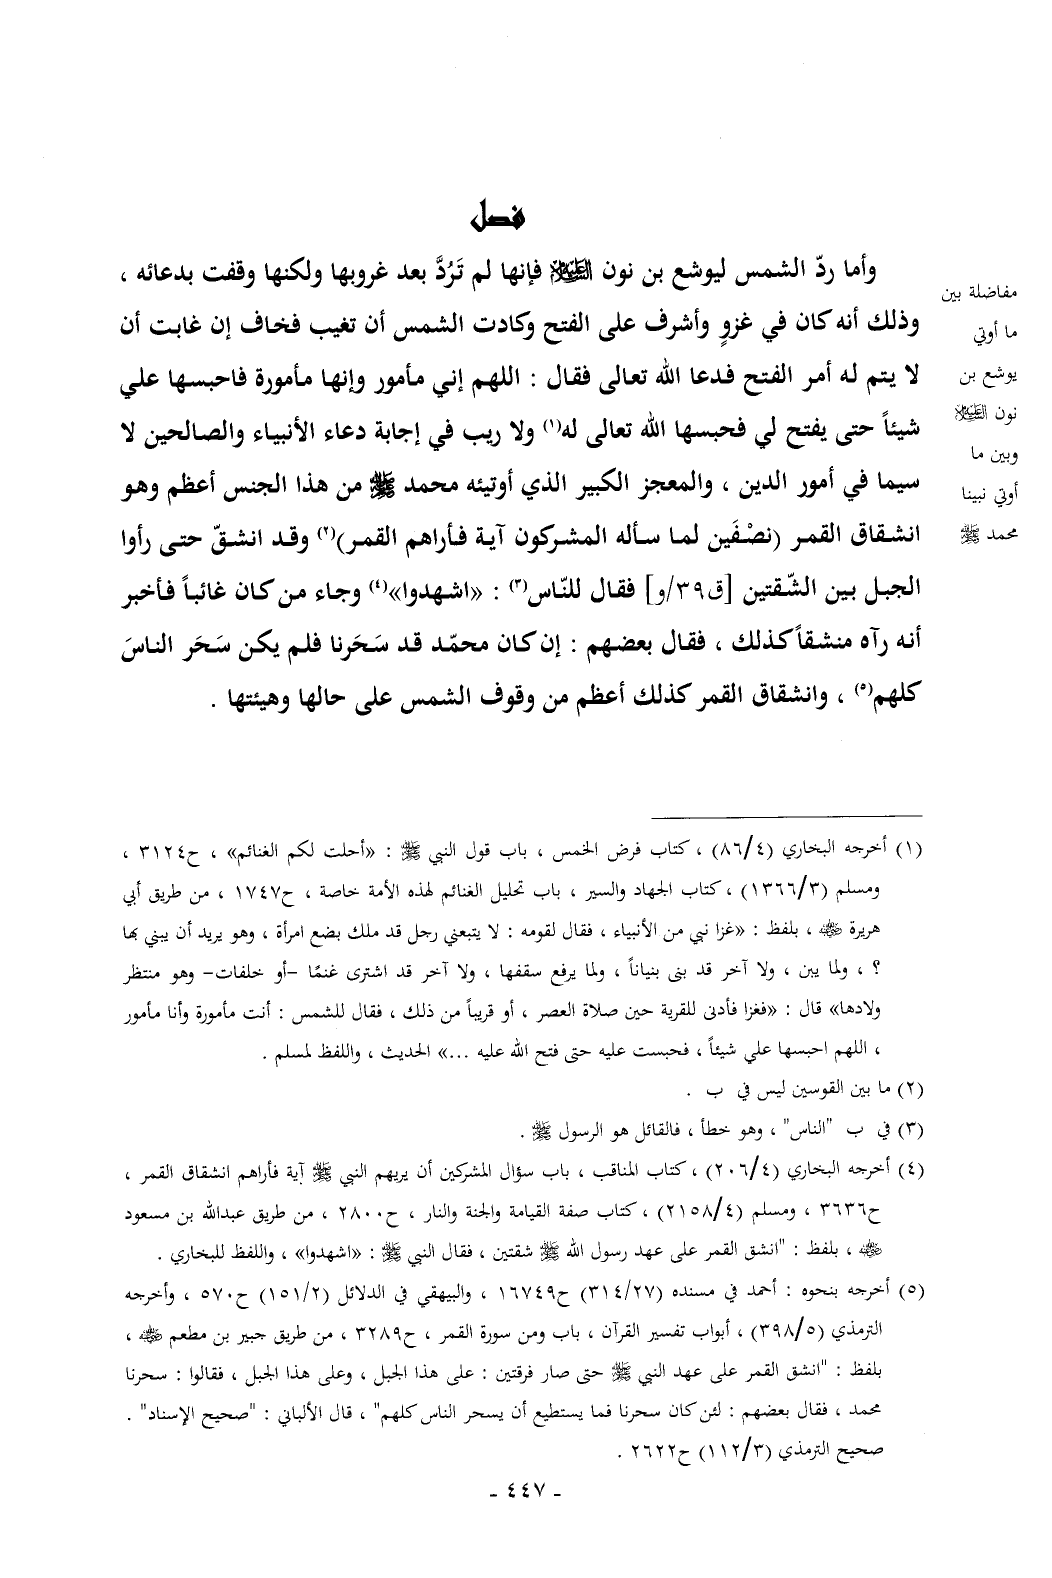 فصل
وأما ردّ الشمس ليوشع بن نون عليه السلام فإنها لم تَرُدَّ بعد غروبها ولكنها وقفت بدعائه ،
وذلك أنه كان في غزوٍ وأشرف على الفتح وكادت الشمس أن تغيب فخاف إن غابت أن
لا يتم له أمر الفتح فدعا الله تعالى فقال : اللهم إني مأمور وإنها مأمورة فاحبسها علي
شيئاً حتى يفتح لي فحبسها الله تعالى له(١) ولا ريب في إجابة دعاء الأنبياء والصالحين لا
سيما في أمور الدين ، والمعجز الكبير الذي أوتيئه محمد ﷺ من هذا الجنس أعظم وهو
انشقاق القمر (نصْفَين لما سأله المشركون آية فأراهم القمر)(٢) وقد انشقّ حتى رأوا
الجبل بين الشّقتين [ق٣٩/و] فقال للنّاس(٣) : «اشهدوا»(٤) وجاء من كان غائباً فأخبر
أنه رآه منشقاً كذلك ، فقال بعضهم : إن كان محمّد قد سَحَرنا فلم يكن سَحَر الناسَ
كلهم(٥) ، وانشقاق القمر كذلك أعظم من وقوف الشمس على حالها وهيئتها .
مفاضلة بين
ما أوتي
يوشع بن
نون عليه السلام
وبين ما
أوتي نبينا
محمد ﷺ
(١) أخرجه البخاري (٨٦/٤) ، كتاب فرض الخمس ، باب قول النبي ﷺ : «أحلت لكم الغنائم» ، ح٣١٢٤ ،
ومسلم (١٣٦٦/٣) ، كتاب الجهاد والسير ، باب تحليل الغنائم لهذه الأمة خاصة ، ح١٧٤٧ ، من طريق أبي
هريرة رضي الله عنه ، بلفظ : «غزا نبي من الأنبياء ، فقال لقومه : لا يتبعني رجل قد ملك بضع امرأة ، وهو يريد أن يبني بها
؟ ، ولما يبن ، ولا آخر قد بنى بنياناً ، ولما يرفع سقفها ، ولا آخر قد اشترى غنمًا -أو خلفات- وهو منتظر
ولادها» قال : «فغزا فأدنى للقرية حين صلاة العصر ، أو قريباً من ذلك ، فقال للشمس : أنت مأمورة وأنا مأمور
، اللهم احبسها علي شيئاً ، فحبست عليه حتى فتح الله عليه ...» الحديث ، واللفظ لمسلم .
(٢) ما بين القوسين ليس في ب .
(٣) في ب "الناس" ، وهو خطأ ، فالقائل هو الرسول ﷺ .
(٤) أخرجه البخاري (٢٠٦/٤) ، كتاب المناقب ، باب سؤال المشركين أن يريهم النبي ﷺ آية فأراهم انشقاق القمر ،
ح٣٦٣٦ ، ومسلم (٢١٥٨/٤) ، كتاب صفة القيامة والجنة والنار ، ح٢٨٠٠ ، من طريق عبدالله بن مسعود
رضي الله عنه ، بلفظ : "انشق القمر على عهد رسول الله ﷺ شقتين ، فقال النبي ﷺ : «اشهدوا» ، واللفظ للبخاري .
(٥) أخرجه بنحوه : أحمد في مسنده (٣١٤/٢٧) ح١٦٧٤٩ ، والبيهقي في الدلائل (١٥١/٢) ح٥٧٠ ، وأخرجه
الترمذي (٣٩٨/٥) ، أبواب تفسير القرآن ، باب ومن سورة القمر ، ح٣٢٨٩ ، من طريق جبير بن مطعم رضي الله عنه ،
بلفظ : "انشق القمر على عهد النبي ﷺ حتى صار فرقتين : على هذا الجبل ، وعلى هذا الجبل ، فقالوا : سحرنا
محمد ، فقال بعضهم : لئن كان سحرنا فما يستطيع أن يسحر الناس كلهم" ، قال الألباني : "صحيح الإسناد" .
صحيح الترمذي (١١٢/٣) ح٢٦٢٢ .
- ٤٤٧ -